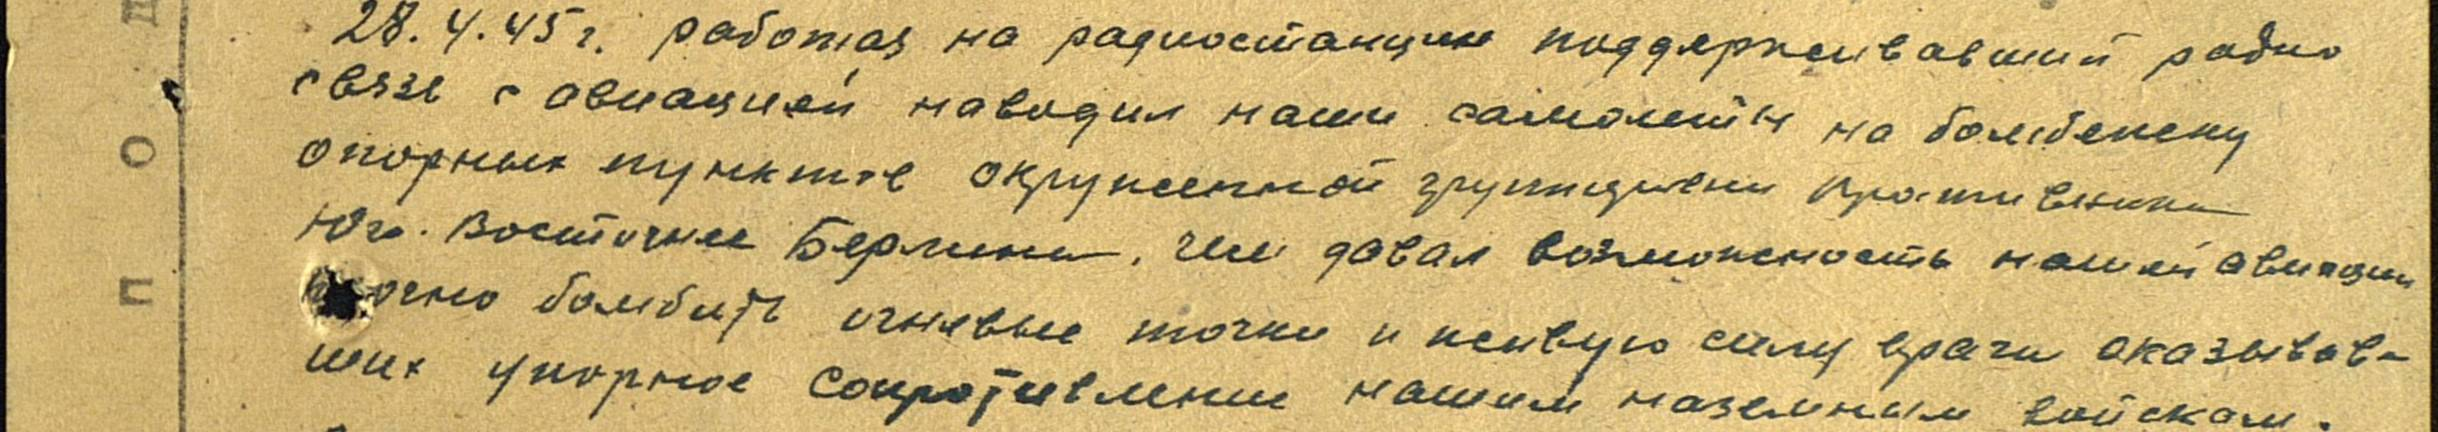 28.4.45 г. работая на радиостанции поддерживавший радио
связь с авиацией наводил наши самолеты на бомбежку
опорных пунктов окруженной группировки противника
Юго. Восточнее Берлина, чем давал возможность нашей авиации
точно бомбить огневые точки и живую силу врага оказывав-
ших упорное сопротивление нашим наземным войскам.
П О Д